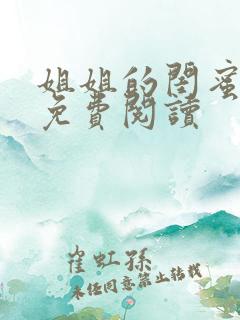 姐姐的閨蜜
免費閱讀
崔虹孫
未经同意禁止转载